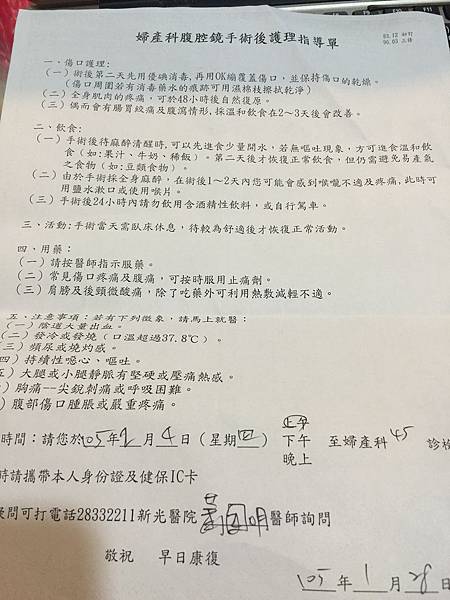 婦產科腹腔鏡手術後護理指導單
83.12 初訂
90.03 三修
一、傷口護理:
(一)術後第二天先用優碘消毒,再用OK繃覆蓋傷口,並保持傷口的乾燥。
(傷口周圍若有消毒藥水的痕跡可用濕棉枝擦拭乾淨)
(二)全身肌肉的疼痛,可於48小時後自然復原。
(三)偶而會有腸胃絞痛及腹瀉情形,採溫和飲食在2~3天後會改善。
二、飲食:
(一)手術後待麻醉清醒時,可以先進食少量開水,若無嘔吐現象,方可進食溫和飲
食(如:果汁、牛奶、稀飯)。第二天後才恢復正常飲食,但仍需避免易產氣
之食物(如:豆類食物)。
(二)由於手術採全身麻醉,在術後1~2天內您可能會感到喉嚨不適及疼痛,此時可
用鹽水漱口或使用喉片。
(三)手術後24小時內請勿飲用含酒精性飲料,或自行駕車。
三、活動:手術當天需臥床休息,待較為舒適後才恢復正常活動。
四、用藥:
(一)請按醫師指示服藥。
(二)常見傷口疼痛及腹痛,可按時服用止痛劑。
(三)肩膀及後頸微酸痛,除了吃藥外可利用熱敷減輕不適。
五、注意事項:若有下列徵象,請馬上就醫:
(一)陰道大量出血。
(二)發冷或發燒(口溫超過37.8℃)。
(三)頻尿或燒灼感。
四)持續性噁心、嘔吐。
五)大腿或小腿靜脈有堅硬或壓痛熱感。
)胸痛--尖銳刺痛或呼吸困難。
)腹部傷口腫脹或嚴重疼痛。
時間:請您於105年2月4日(星期四)
上午
下午
晚上
至婦產科45診
時請攜帶本人身份證及健保IC卡
疑問可打電話28332211新光醫院黃國明醫師詢問
敬祝 早日康復
105年1月28日